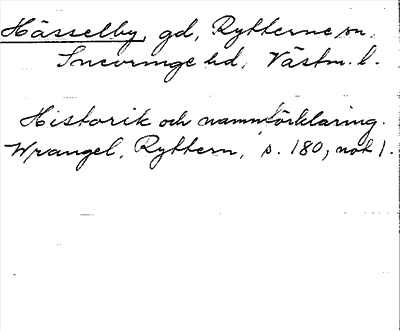 Hässelby, gd, Rytterne sn,
Snevringe hd, Västm. l.
Historik och namnförklaring.
Wrangel, Ryttern, s. 180, not 1.